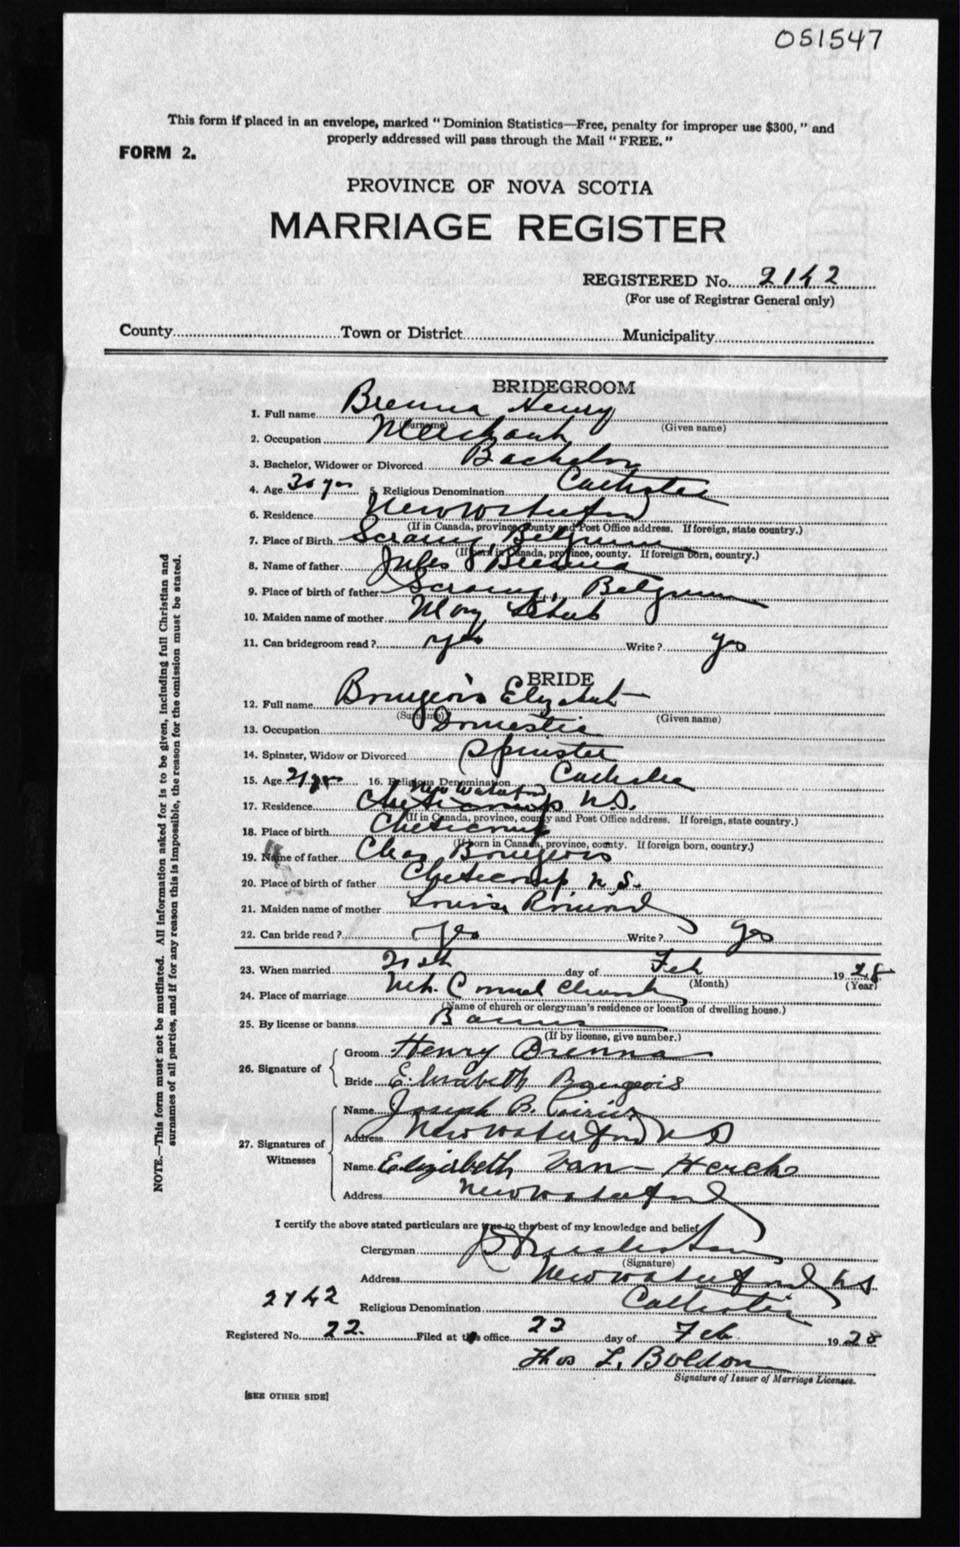 051547
This form if placed in an envelope, marked " Dominion Statistics—Free, penalty for improper use $300, " and
properly addressed will pass through the Mail " FREE. "
FORM 2.
PROVINCE OF NOVA SCOTIA
MARRIAGE REGISTER
REGISTERED No. 2142
(For use of Registrar General only)
County Town or District Municipality
BRIDEGROOM
1. Full name Brenna Henry
(Surname) (Given name)
2. Occupation Merchant
3. Bachelor, Widower or Divorced Bachelor
4. Age 30 yrs 5. Religious Denomination Catholic
6. Residence New Waterford
(If in Canada, province, county and Post Office address. If foreign, state country.)
7. Place of Birth Seraing, Belgium
(If born in Canada, province, county. If foreign born, country.)
8. Name of father Jules Brenna
9. Place of birth of father Seraing, Belgium
10. Maiden name of mother Mary
11. Can bridegroom read ? yes Write ? yes
BRIDE
12. Full name Bourgeois Elizabeth
(Surname) (Given name)
13. Occupation Domestic
14. Spinster, Widow or Divorced Spinster
15. Age 21 yrs 16. Religious Denomination Catholic
New Waterford
17. Residence Cheticamp N.S.
(If in Canada, province, county and Post Office address. If foreign, state country.)
18. Place of birth Cheticamp
(If born in Canada, province, county. If foreign born, country.)
19. Name of father Chas Bourgeois
20. Place of birth of father Cheticamp, N.S.
21. Maiden name of mother Louise
22. Can bride read ? Yes Write ? Yes
23. When married 21st day of Feb 1928
(Month) (Year)
24. Place of marriage Mt. Carmel Church
(Name of church or clergyman's residence or location of dwelling house.)
25. By license or banns Banns
(If by license, give number.)
26. Signature of
Groom Henry Brenna
Bride Elisabeth Bourgeois
27. Signatures of Witnesses
Name Joseph B.
Address New Waterford N S
Name Elizabeth Van Herck
Address New Waterford
I certify the above stated particulars are true to the best of my knowledge and belief.
Clergyman
(Signature)
Address New Waterford N S
2142 Religious Denomination Catholic
Registered No. 22. Filed at this office 22 day of Feb. 1928
Thos L. Boldon
Signature of Issuer of Marriage Licenses.
[SEE OTHER SIDE]
NOTE.—This form must not be mutilated. All information asked for is to be given, including full Christian and
surnames of all parties, and if for any reason this is impossible, the reason for the omission must be stated.